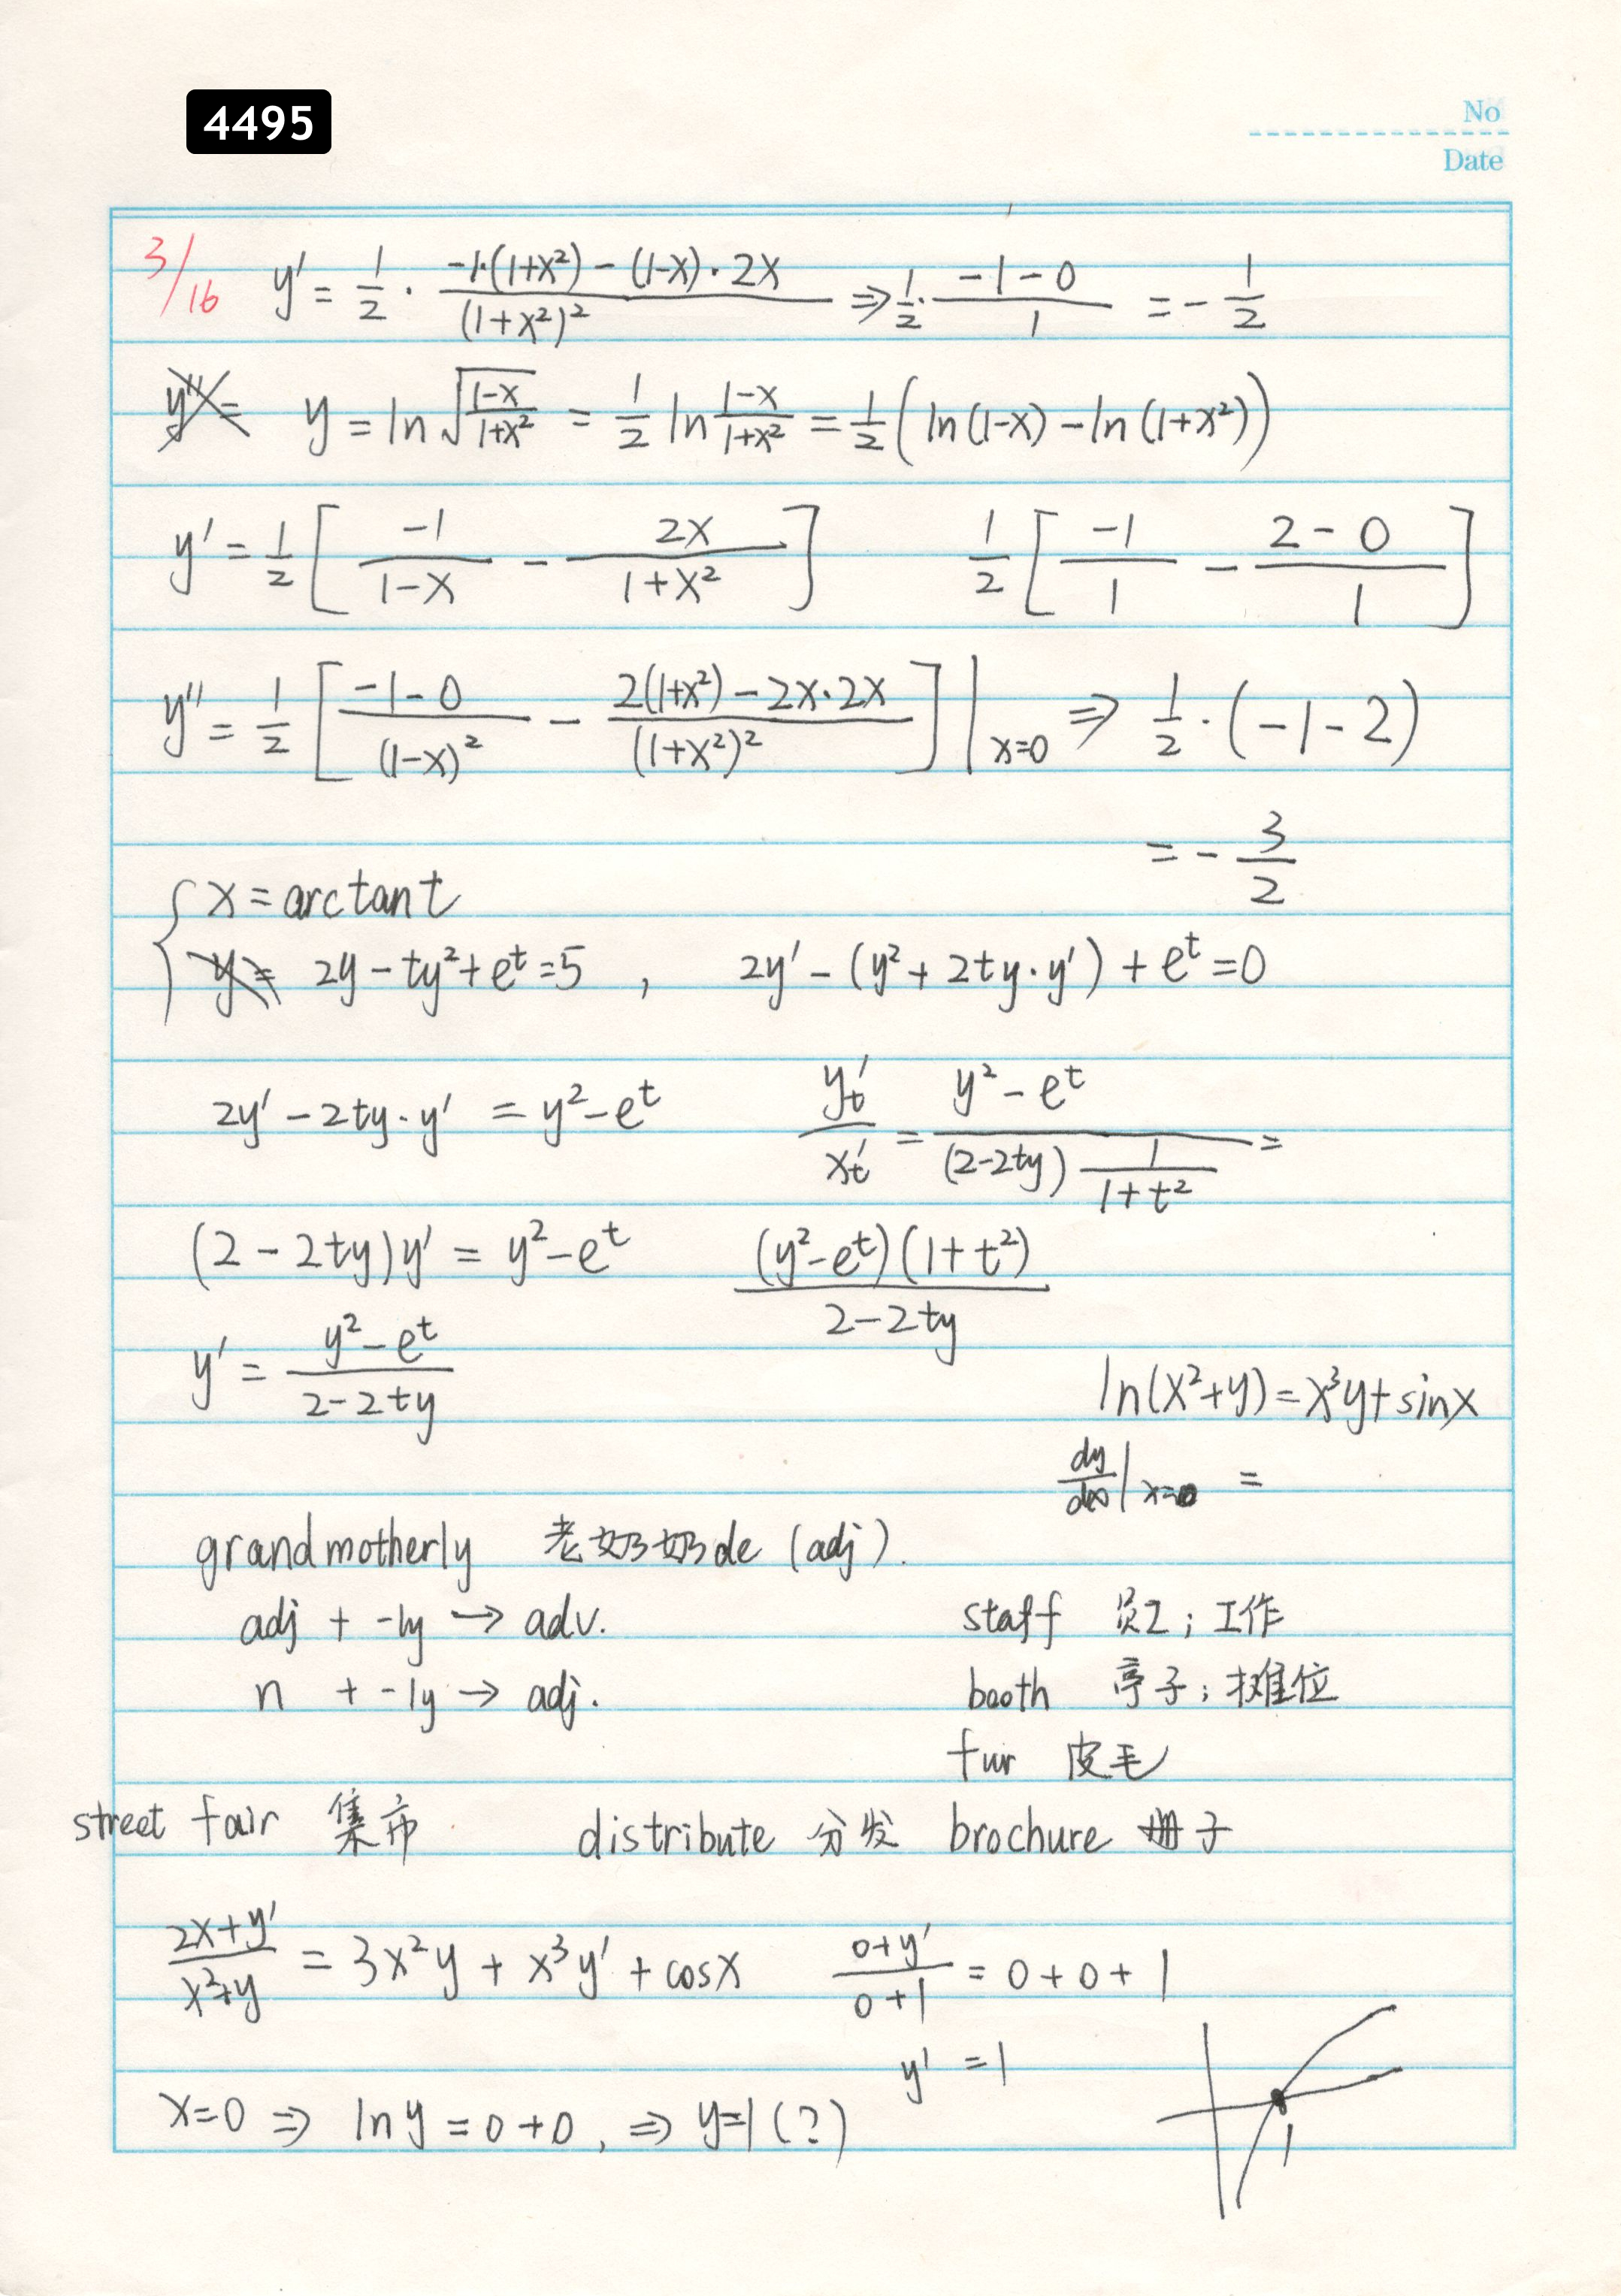 4495
No
Date
3/16 y' = 1/2 · (-1·(1+x²) - (1-x)·2x)/((1+x²)²) ⇒ 1/2 · (-1-0)/1 = -1/2
y = ln√((1-x)/(1+x²)) = 1/2 ln (1-x)/(1+x²) = 1/2 (ln(1-x) - ln(1+x²))
y' = 1/2 [ -1/(1-x) - 2x/(1+x²) ] 1/2 [ -1/1 - (2-0)/1 ]
y'' = 1/2 [ (-1-0)/((1-x)²) - (2(1+x²) - 2x·2x)/((1+x²)²) ] |x=0 ⇒ 1/2 · (-1-2)
= -3/2
{ x = arctan t
2y - ty² + e^t = 5 , 2y' - (y² + 2ty·y') + e^t = 0
2y' - 2ty·y' = y² - e^t y't/x't = (y² - e^t)/((2-2ty) 1/(1+t²)) =
(2 - 2ty)y' = y² - e^t (y² - e^t)(1+t²)/(2-2ty)
y' = (y² - e^t)/(2-2ty)
ln(x²+y) = x³y + sinx
dy/dx |x=0 =
grandmotherly 老奶奶de (adj).
adj + -ly → adv. staff 员工; 工作
n + -ly → adj. booth 亭子; 摊位
fur 皮毛
street fair 集市 distribute 分发 brochure 册子
(2x+y')/(x²+y) = 3x²y + x³y' + cosx (0+y')/(0+1) = 0+0+1
y' = 1
x=0 ⇒ ln y = 0+0, ⇒ y=1 (?) 1